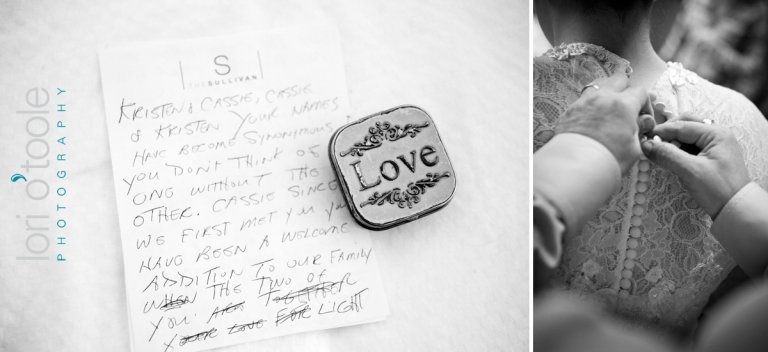 lori o'toole
PHOTOGRAPHY
S
THE SULLIVAN
KRISTEN & CASSIE, CASSIE
& KRISTEN YOUR NAMES
HAVE BECOME SYNONYMOUS,
YOU DON'T THINK OF
ONE WITHOUT THE
OTHER. CASSIE SINCE
WE FIRST MET YOU YOU
HAVE BEEN A WELCOME
ADDITION TO OUR FAMILY
WHEN THE TWO OF
YOU ARE TOGETHER
YOUR LOVE FOR LIGHT
Love